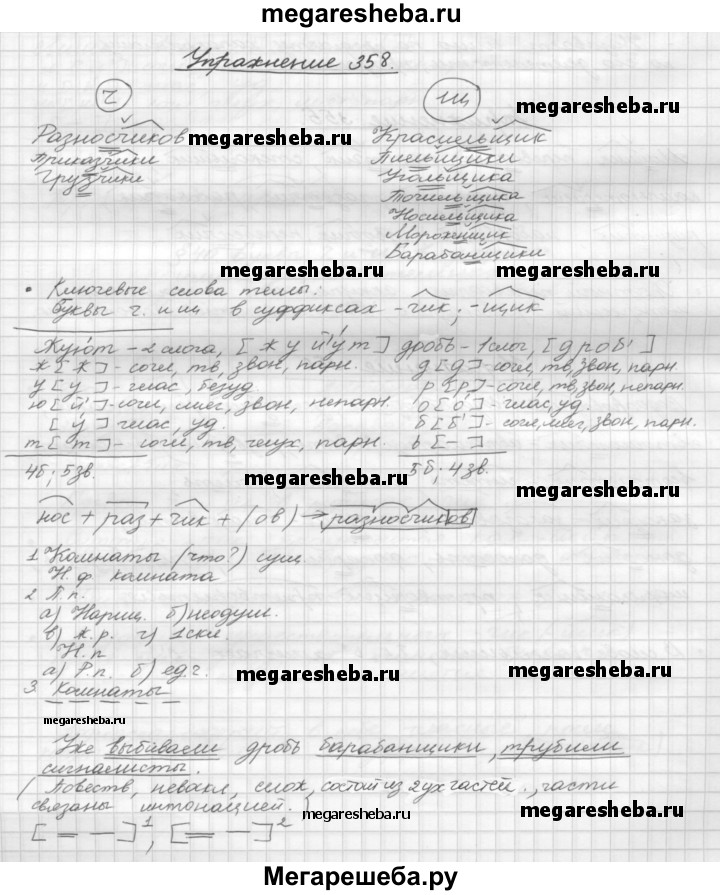 megaresheba.ru
Упражнение 358.
ч щ
Разносчиков Красильщик
Приказчики Пильщики
Грузчики Угольщика
Точильщика
Носильщика
Мороженщик
Барабанщики
megaresheba.ru
megaresheba.ru
megaresheba.ru
megaresheba.ru
• Ключевые слова темы:
буквы ч и щ в суффиксах -чик; -щик
megaresheba.ru
Жуют - 2 слога, [жуй'ут] дробь - 1 слог, [дроб']
ж [ж] - согл, тв, звон, парн. д [д] - согл, тв, звон, парн.
у [у] - глас, безуд. р [р] - согл, тв, звон, непарн.
ю [й'] - согл, мяг, звон, непарн. о [о́] - глас, уд.
[у́] глас, уд. б [б'] - согл, мяг, звон, парн.
т [т] - согл, тв, глух, парн. ь [-]
4б; 5зв. 5б; 4зв.
megaresheba.ru
megaresheba.ru
нос + раз + чик + (ов) → разносчиков
1 Комнаты (что?) сущ.
Н.ф комната
2 П.п.
а) Нариц. б) неодуш.
в) ж.р. г) 1 скл.
Н.п
а) Р.п. б) ед.ч.
3. комнаты
megaresheba.ru
megaresheba.ru
megaresheba.ru
Уже выбивали дробь барабанщики, трубили
сигналисты.
(Повеств, невоскл, слож, состоит из 2ух частей, части
связаны интонацией.)
megaresheba.ru
megaresheba.ru
[= -]1, [= -]2
Мегарешеба.ру